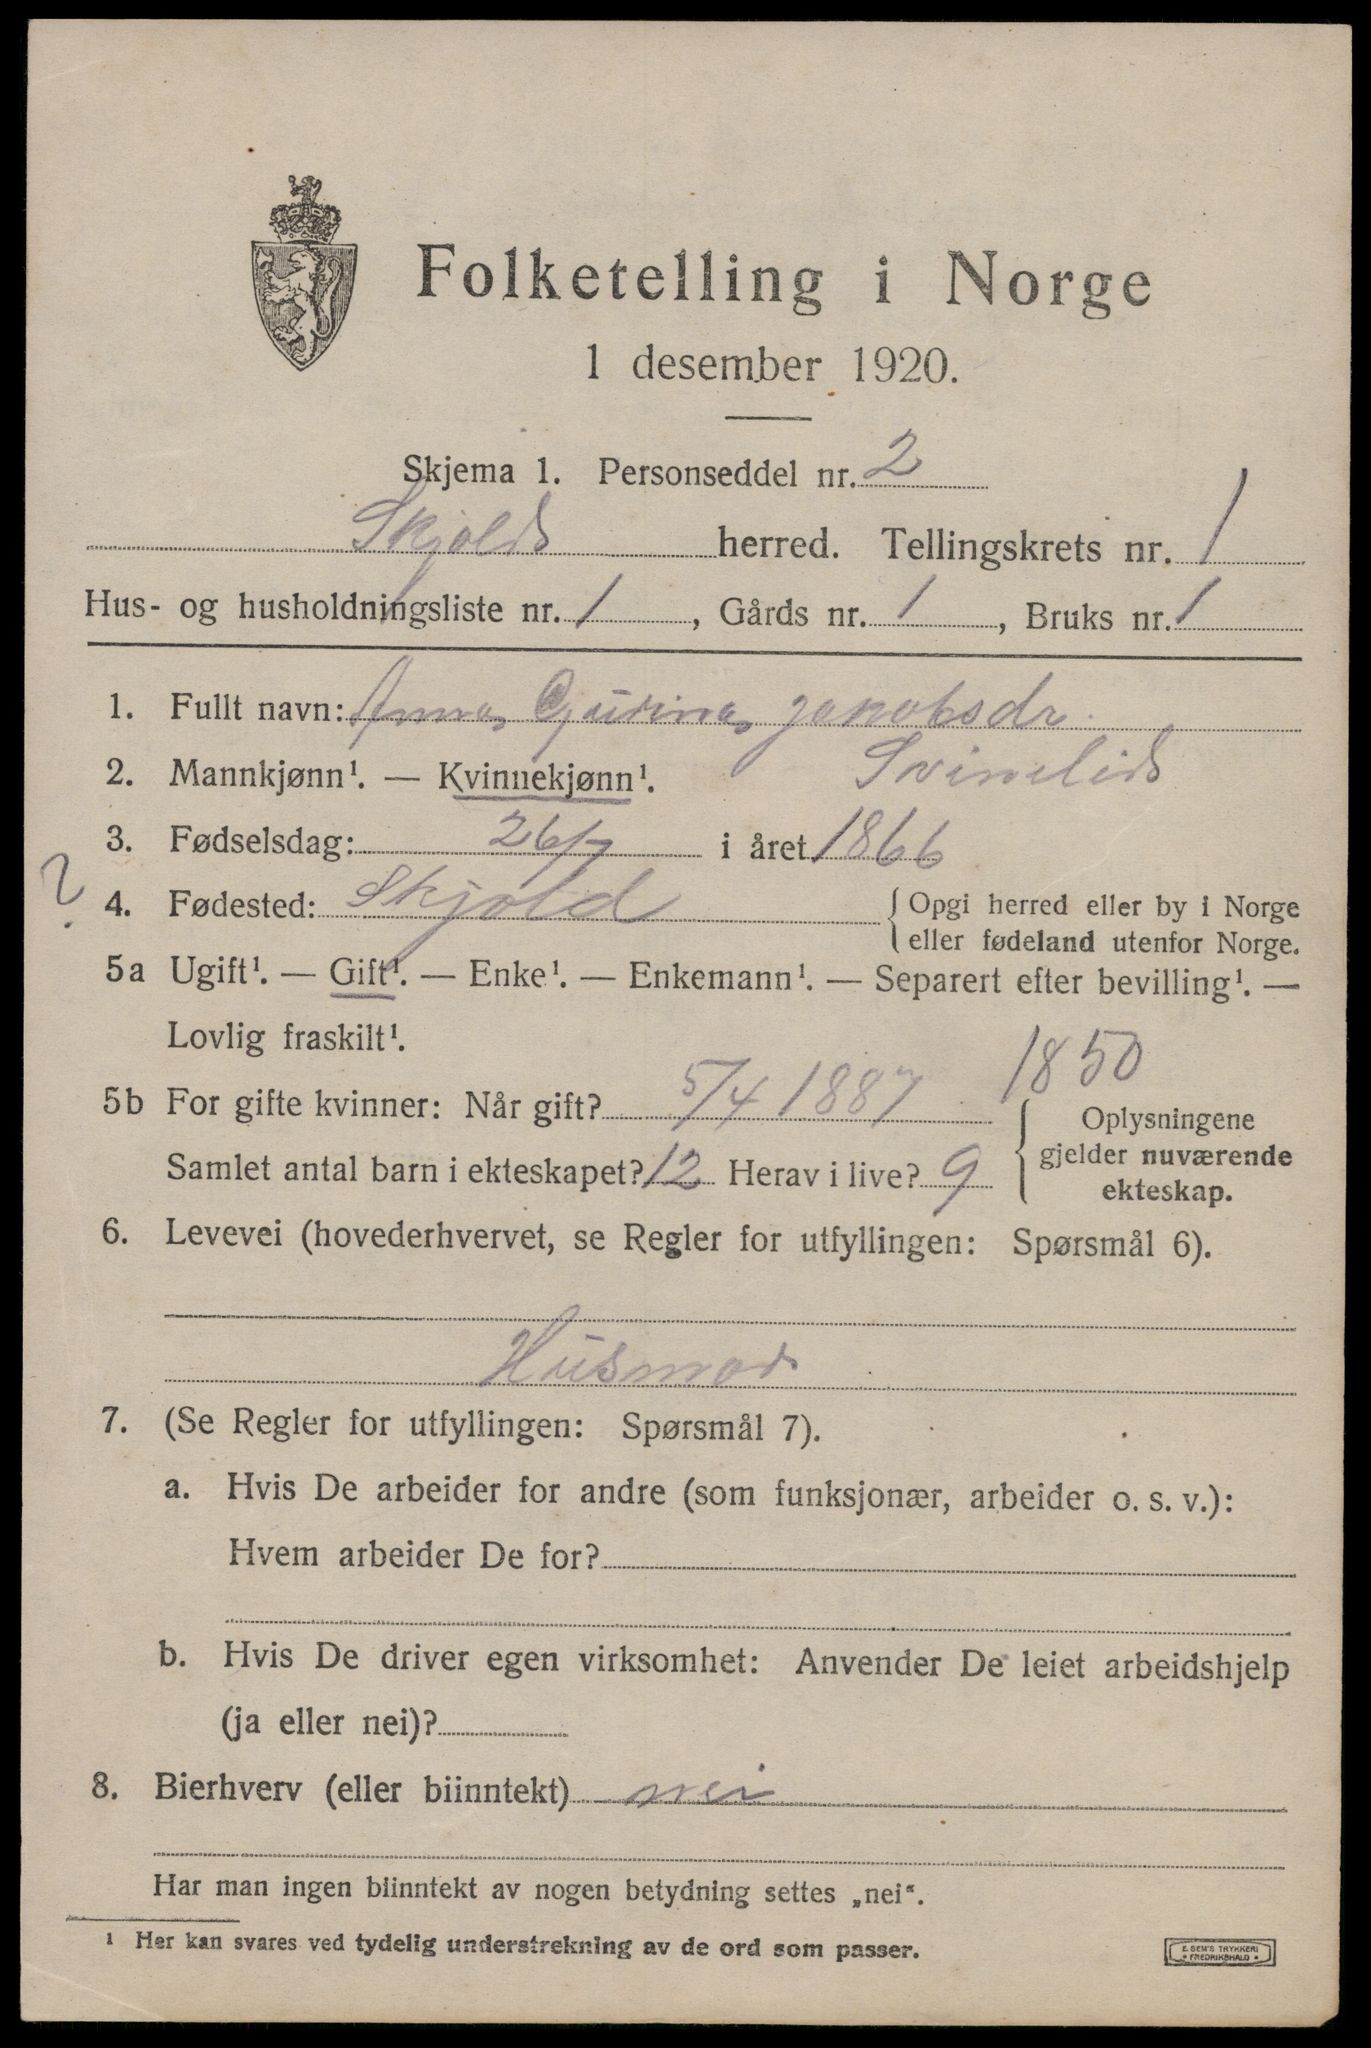 Folketelling i Norge
1 desember 1920.
Skjema 1. Personseddel nr. 2
Skjolds herred. Tellingskrets nr. 1
Hus- og husholdningsliste nr. 1, Gårds nr. 1, Bruks nr. 1
1. Fullt navn: Anna Gurina Jakobsdr.
2. Mannkjønn¹. — Kvinnekjønn¹. Svinelid
3. Fødselsdag: 26/7 i året 1866
?
4. Fødested: Skjold { Opgi herred eller by i Norge
eller fødeland utenfor Norge.
5a Ugift¹. — Gift¹. — Enke¹. — Enkemann¹. — Separert efter bevilling¹. —
Lovlig fraskilt¹.
1850
5b For gifte kvinner: Når gift? 5/4 1887 { Oplysningene
gjelder nuværende
ekteskap.
Samlet antal barn i ekteskapet? 12 Herav i live? 9
6. Levevei (hovederhvervet, se Regler for utfyllingen: Spørsmål 6).
Husmor
7. (Se Regler for utfyllingen: Spørsmål 7).
a. Hvis De arbeider for andre (som funksjonær, arbeider o. s. v.):
Hvem arbeider De for?
b. Hvis De driver egen virksomhet: Anvender De leiet arbeidshjelp
(ja eller nei)?
8. Bierhverv (eller biinntekt) nei
Har man ingen biinntekt av nogen betydning settes „nei“.
¹ Her kan svares ved tydelig understrekning av de ord som passer.
E. SEM'S TRYKKERI
FREDRIKSHALD